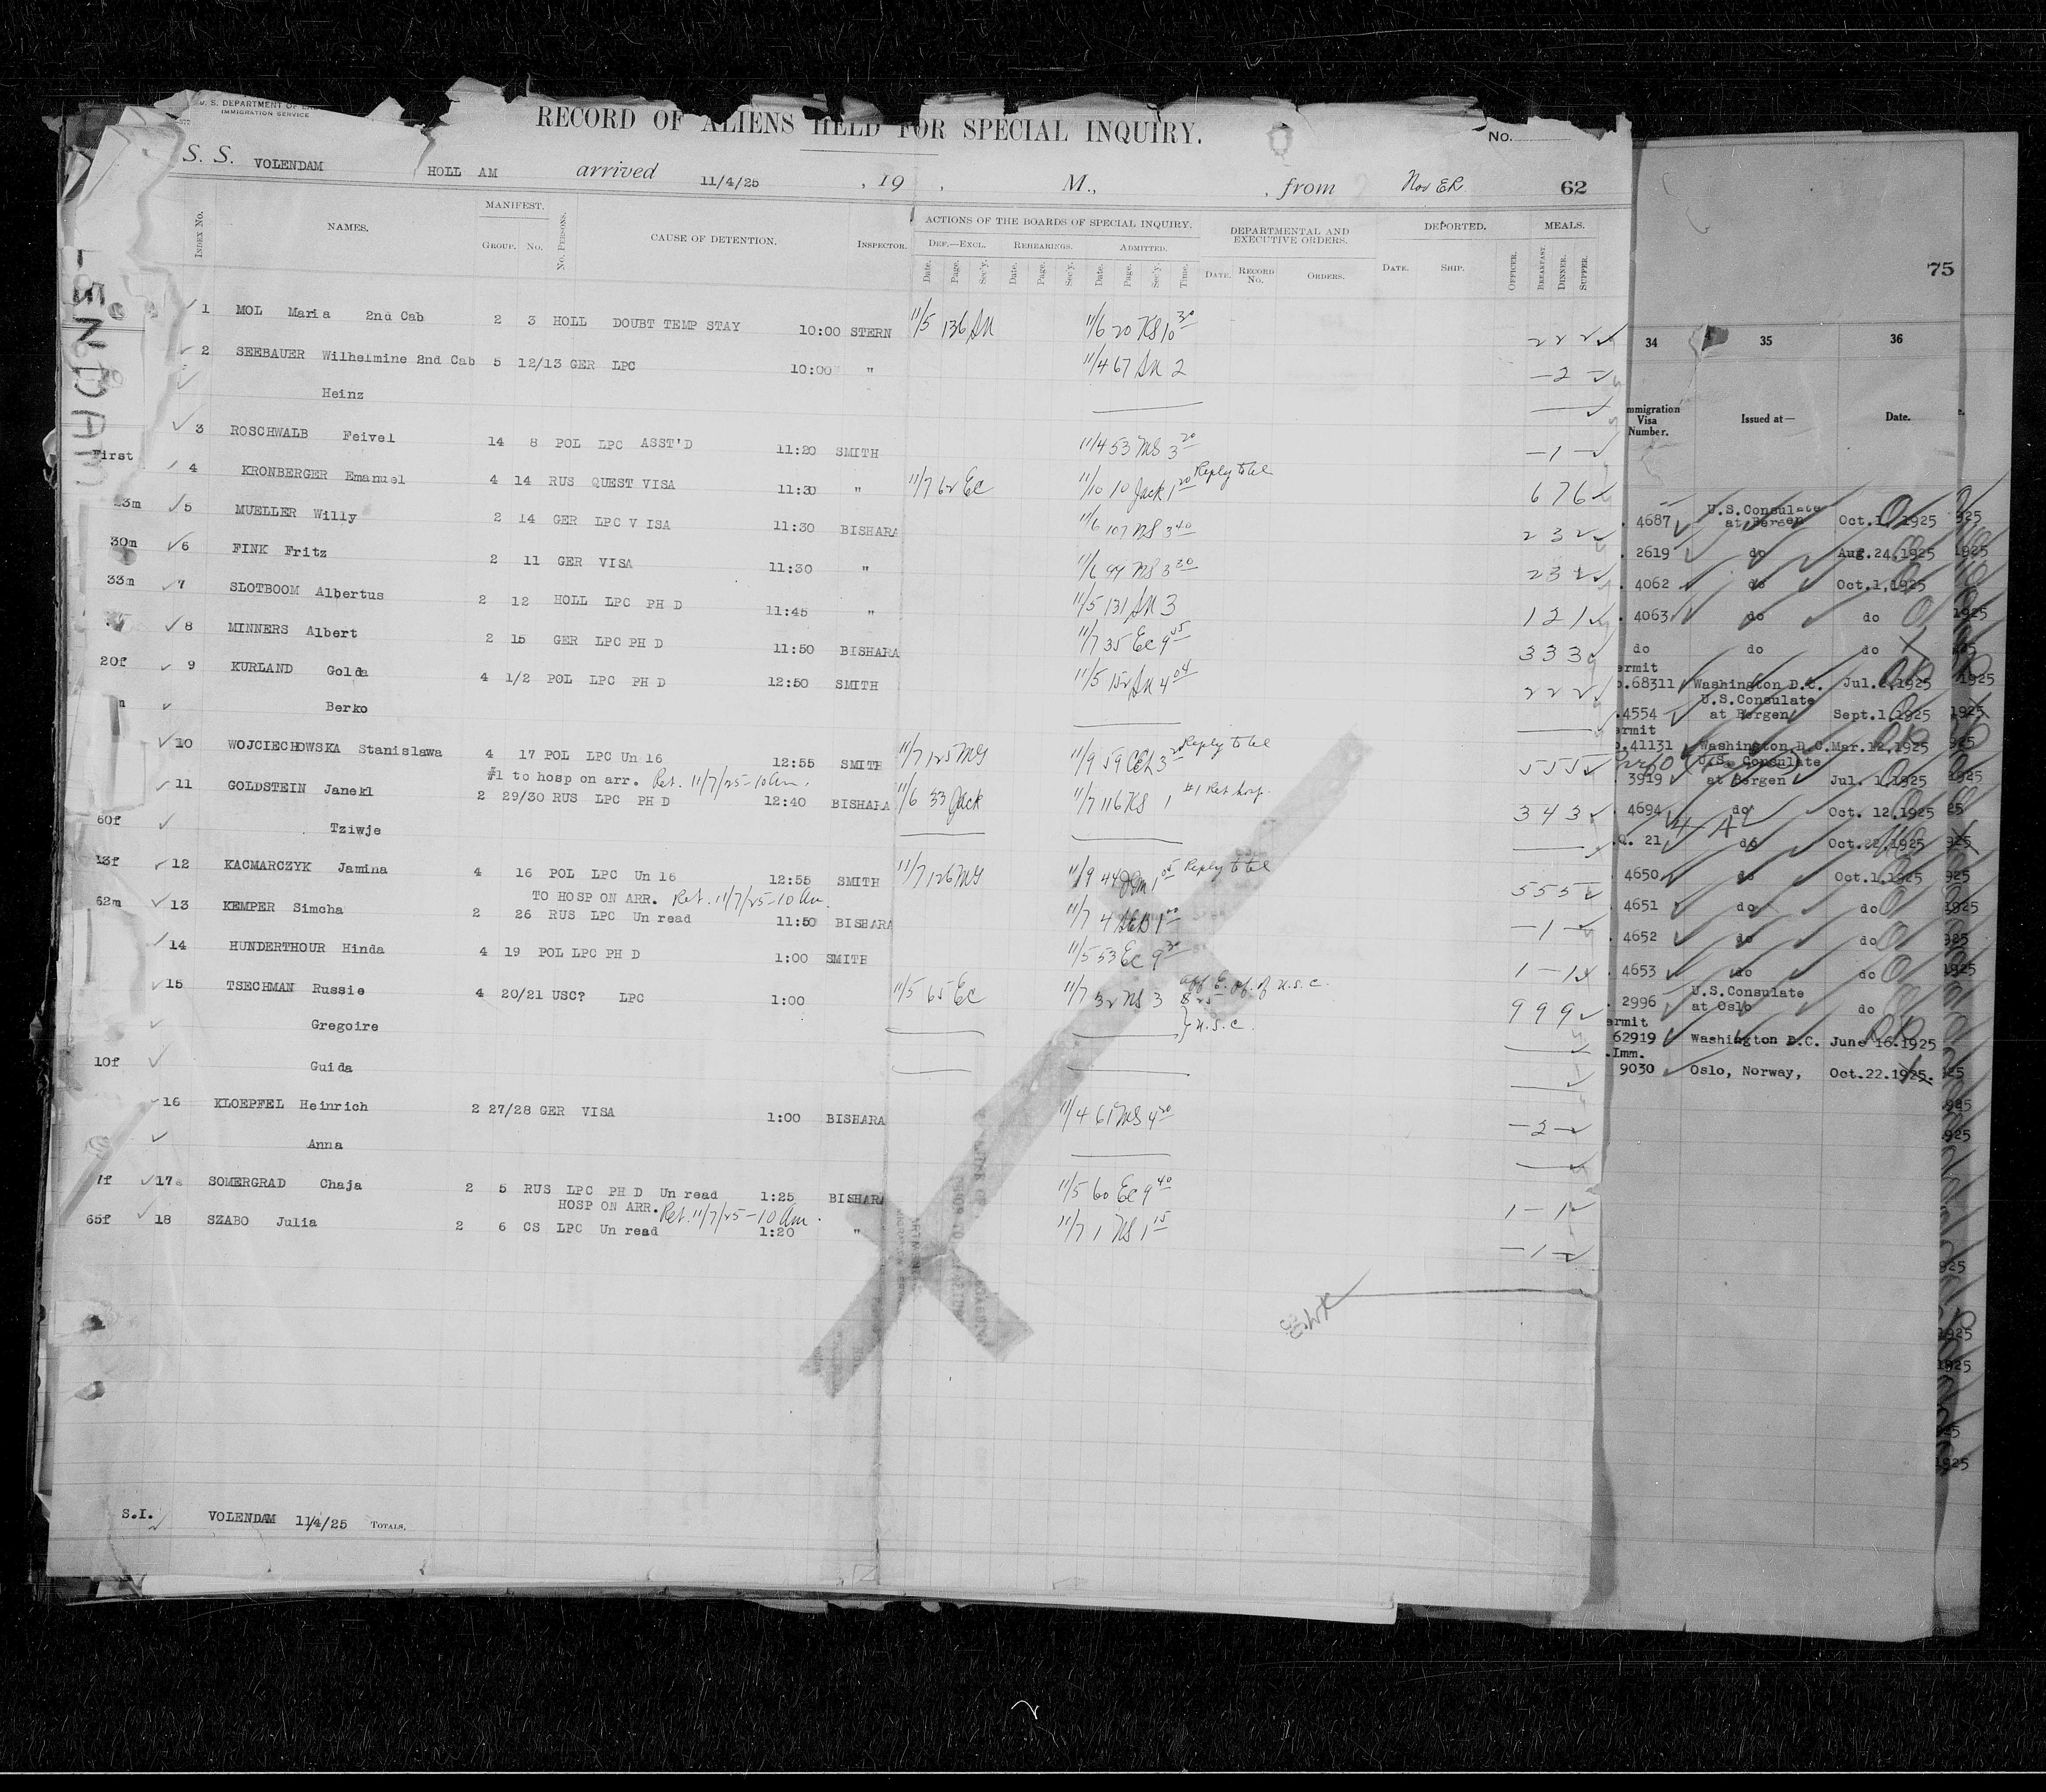 U. S. DEPARTMENT OF
IMMIGRATION SERVICE
RECORD OF ALIENS HELD FOR SPECIAL INQUIRY.
No.
S. S. VOLENDAM HOLL AM arrived 11/4/25 , 19 , M., , from 62
Index No. NAMES. MANIFEST. Group. No. No. Persons. CAUSE OF DETENTION. Inspector. ACTIONS OF THE BOARDS OF SPECIAL INQUIRY. DEPARTMENTAL AND EXECUTIVE ORDERS. DEPORTED. MEALS.
Def.—Excl. Rehearings. Admitted.
Date. Page. Sec'y. Date. Page. Sec'y. Date. Page. Sec'y. Time. Date. Record No. Orders. Date. Ship. Officer. Breakfast. Dinner. Supper.
1 MOL Maria 2nd Cab 2 3 HOLL DOUBT TEMP STAY 10:00 STERN 11/5 136 11/6 20 KS 10 30 2 2 2
2 SEEBAUER Wilhelmine 2nd Cab 5 12/13 GER LPC 10:00 " 11/4 67 2 – 2 –
Heinz
3 ROSCHWALB Feivel 14 8 POL LPC ASST'D 11:20 SMITH 11/4 53 MS 3 20 – 1 –
First
4 KRONBERGER Emanuel 4 14 RUS QUEST VISA 11:30 " 11/7 62 EC 11/10 10 Jack 1 20 Reply to tel 6 7 6
23m 5 MUELLER Willy 2 14 GER LPC V ISA 11:30 BISHARA 11/6 107 NS 3 40 2 3 2
30m 6 FINK Fritz 2 11 GER VISA 11:30 " 11/6 94 NS 3 30 2 3 2
33m 7 SLOTBOOM Albertus 2 12 HOLL LPC PH D 11:45 " 11/5 131 3 1 2 1
8 MINNERS Albert 2 15 GER LPC PH D 11:50 BISHARA 11/7 35 EC 9 05 3 3 3
20f 9 KURLAND Golda 4 1/2 POL LPC PH D 12:50 SMITH 11/5 152 4 04 2 2 2
Berko
10 WOJCIECHOWSKA Stanislawa 4 17 POL LPC Un 16 12:55 SMITH 11/7 125 MG 11/9 59 3 Reply to tel 5 5 5
#1 to hosp on arr. Ret. 11/7/25-10 am.
11 GOLDSTEIN Janekl 2 29/30 RUS LPC PH D 12:40 BISHARA 11/6 33 Jack 11/7 116 KS 1 #1 Ret hosp. 3 4 3
60f Tziwje
13f 12 KACMARCZYK Jamina 4 16 POL LPC Un 16 12:55 SMITH 11/7 126 MG 11/9 44 1 05 Reply to tel 5 5 5
TO HOSP ON ARR. Ret. 11/7/25-10 am.
62m 13 KEMPER Simcha 2 26 RUS LPC Un read 11:50 BISHARA 11/7 4 1 – 1 –
14 HUNDERTHOUR Hinda 4 19 POL LPC PH D 1:00 SMITH 11/5 53 EC 9 30 1 – 1
15 TSECHMAN Russie 4 20/21 USC? LPC 1:00 11/5 65 EC 11/7 32 NS 3 9 9 9
Gregoire U.S.C.
10f Guida
16 KLOEPFEL Heinrich 2 27/28 GER VISA 1:00 BISHARA 11/4 61 MS 4 20 – 2 –
Anna
7f 17 SOMERGRAD Chaja 2 5 RUS LPC PH D Un read 1:25 BISHARA 11/5 60 EC 9 40 1 – 1
HOSP ON ARR. Ret. 11/7/25-10 am.
65f 18 SZABO Julia 2 6 CS LPC Un read 1:20 " 11/7 1 NS 1 15 – 1 –
S.I. VOLENDAM 11/4/25 Totals.
75
34 35 36
mmigration Visa Number. Issued at— Date.
4687 U.S.Consulate at Bergen Oct.1,1925
2619 do Aug.24,1925
4062 do Oct.1,1925
4063 do do
do do do
ermit
.68311 Washington D.C. Jul.2,1925
.4554 U.S.Consulate at Bergen Sept.1,1925
ermit
.41131 Washington D.C. Mar.12,1925
3919 U.S. Consulate at Bergen Jul. 1,1925
4694 do Oct. 12,1925
.Q. 21 do Oct.22,1925
4650 do Oct.1,1925
4651 do do
4652 do do
4653 do do
2996 U.S.Consulate at Oslo do
ermit
62919 Washington D.C. June 16.1925
.Imm.
9030 Oslo, Norway, Oct.22.1925.
2